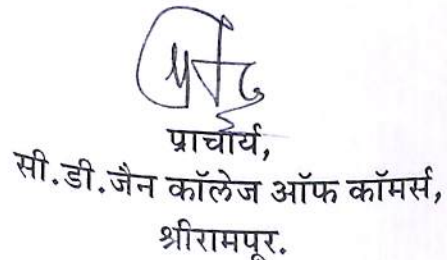 प्राचार्य,
सी.डी.जैन कॉलेज ऑफ कॉमर्स,
श्रीरामपूर.